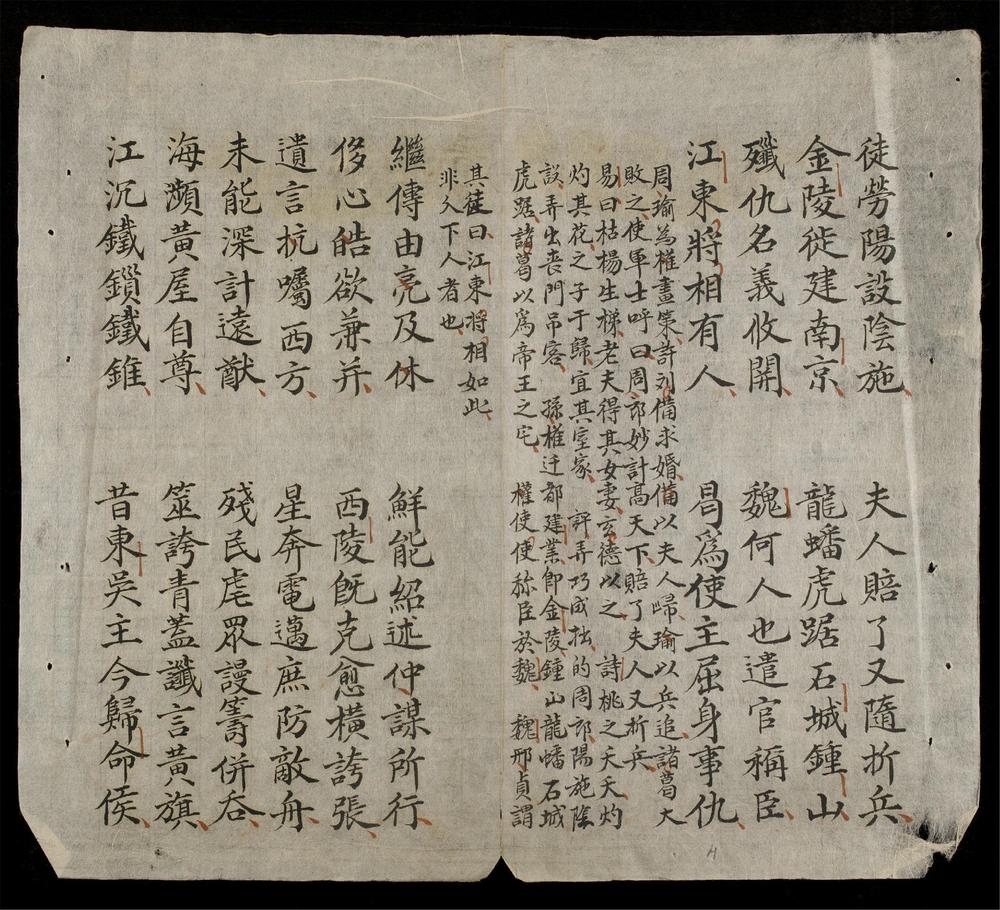 徒勞陽設陰施 夫人賠了又隨折兵
金陵徙建南京 龍蟠虎踞石城鍾山
殲仇名義攸開 魏何人也遣官稱臣
江東將相有人 曷爲使主屈身事仇
周瑜為権畫策許刘備求婚備以夫人歸瑜以兵追諸葛大
敗之使軍士呼曰周郎妙計髙天下賠了夫人又折兵
易曰枯楊生梯老夫得其女妻玄德以之 詩桃之夭夭灼
灼其花之子于歸宜其室家 評弄巧成拙的周郎陽施陰
設弄出丧門吊客 孫権迁都建業即金陵鍾山龍蟠石城
虎踞諸葛以爲帝王之宅 權使使称臣於魏 魏邢貞謂
其徒曰江東将相如此
非久下人者也
繼傳由亮及休 鮮能紹述仲謀所行
侈心皓欲兼并 西陵旣克愈橫誇張
遺言抗囑西方 星奔電邁庶防敵舟
未能深計遠猷 殘民虐眾謾籌併吞
海瀕黃屋自尊 筮誇青蓋讖言黃旗
江沉鐵鎻鐵錐 昔東吳主今歸命侯